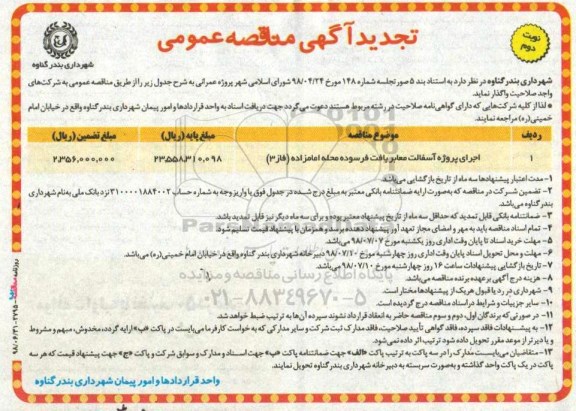 تجدید آگهی مناقصه عمومی
نوبت دوم
شهرداری بندر گناوه
شهرداری بندر گناوه در نظر دارد به استناد بند ۵ صورتجلسه شماره ۱۴۸ مورخ ۹۸/۰۴/۲۴ شورای اسلامی شهر پروژه عمرانی به شرح جدول زیر را از طریق مناقصه عمومی به شرکت‌های
واجد صلاحیت واگذار نماید.
لذا از کلیه شرکت‌هایی که دارای گواهی‌نامه صلاحیت در رشته مربوط هستند دعوت می‌گردد جهت دریافت اسناد به واحد قراردادها و امور پیمان شهرداری بندر گناوه واقع در خیابان امام
خمینی(ره) مراجعه نمایند.
ردیف موضوع مناقصه مبلغ پایه (ریال) مبلغ تضمین (ریال)
۱ اجرای پروژه آسفالت معابر بافت فرسوده محله امامزاده (فاز ۳) ۲۳،۵۵۸،۳۱۰،۰۹۸ ۲،۳۵۶،۰۰۰،۰۰۰
۱- مدت اعتبار پیشنهادها سه ماه از تاریخ بازگشایی می‌باشد.
۲- تضمین شرکت در مناقصه که بصورت ارایه ضمانتنامه بانکی معتبر به مبلغ درج شده در جدول فوق یا واریز وجه به شماره حساب ۳۱۰۰۰۰۱۸۸۴۰۰۲ نزد بانک ملی به نام شهرداری
بندر گناوه می‌باشد.
۳- ضمانتنامه بانکی قابل تمدید که حداقل سه ماه از تاریخ پیشنهاد معتبر بوده و برای سه ماه دیگر نیز قابل تمدید باشد.
۴- تمام اسناد مناقصه باید به مهر و امضای مجاز تعهد آور پیشنهاد دهنده برسد و همزمان با پیشنهاد قیمت تسلیم شود.
۵- مهلت خرید اسناد تا پایان وقت اداری روز یکشنبه مورخ ۹۸/۰۷/۰۷ می‌باشد.
۶- مهلت و محل تحویل اسناد پایان وقت اداری روز چهارشنبه مورخ ۹۸/۰۷/۱۰ دبیرخانه شهرداری بندر گناوه واقع در خیابان امام خمینی(ره) می‌باشد.
۷- تاریخ بازگشایی پیشنهادات ساعت ۱۶ روز چهارشنبه مورخ ۹۸/۰۷/۱۰ می‌باشد.
۸- هزینه درج آگهی بر عهده برنده مناقصه می‌باشد.
۹- شهرداری در رد یا قبول هر یک از پیشنهادها مختار است.
۱۰- سایر جزییات و شرایط در اسناد مناقصه درج گردیده است.
۱۱- در صورتی که برندگان اول، دوم و سوم مناقصه حاضر به انعقاد قرارداد نشوند سپرده آن‌ها به ترتیب ضبط خواهد شد.
۱۲- به پیشنهادات فاقد سپرده، فاقد گواهی تأیید صلاحیت، فاقد مدارک ثبت شرکت و سایر مدارکی که به خواست کارفرما می‌بایست در پاکت «ب» ارایه گردد، مخدوش، مبهم و مشروط
و یا دیرتر از موعد مقرر تحویل داده شود ترتیب اثر داده نمی‌شود.
۱۳- متقاضیان می‌بایست مدارک را در سه پاکت به ترتیب پاکت «الف» جهت ضمانتنامه پاکت «ب» جهت اسناد و مدارک و سوابق شرکت و پاکت «ج» جهت پیشنهاد قیمت که هر سه
پاکت در یک پاکت واحد گذاشته و به‌صورت سربسته به دبیرخانه شهرداری بندر گناوه تحویل نمایند.
واحد قراردادها و امور پیمان شهرداری بندر گناوه
پایگاه اطلاع رسانی مناقصه و مزایده
۰۲۱-۸۸۳۴۹۶۷۰-۵